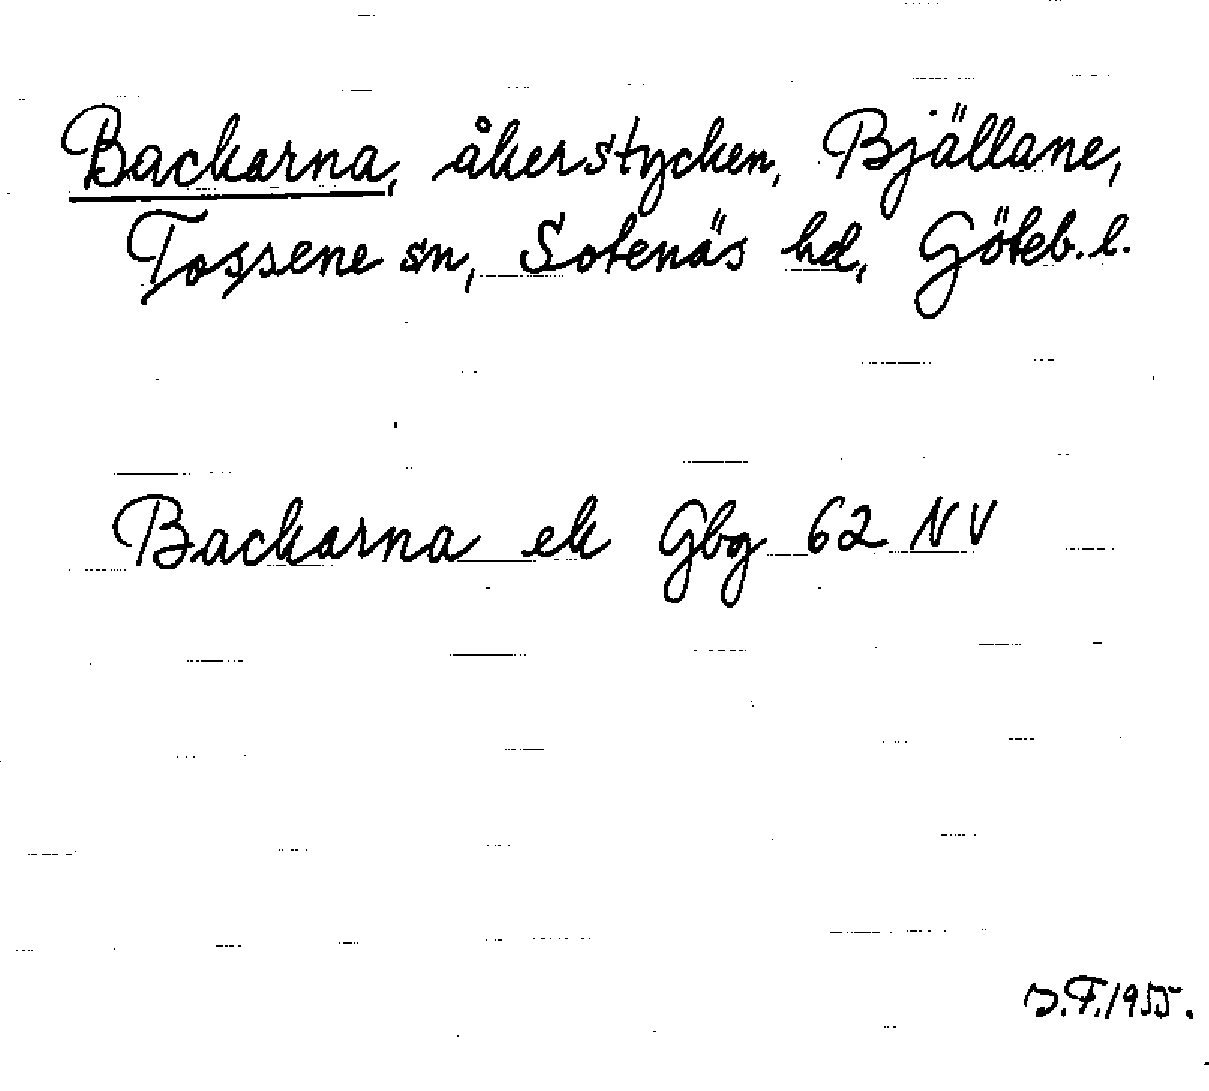 Backarna, åkerstycken, Bjällane,
Tossene sn, Sotenäs hd, Göteb. l.
Backarna ek Gbg 62 NV
S.F. 1955.